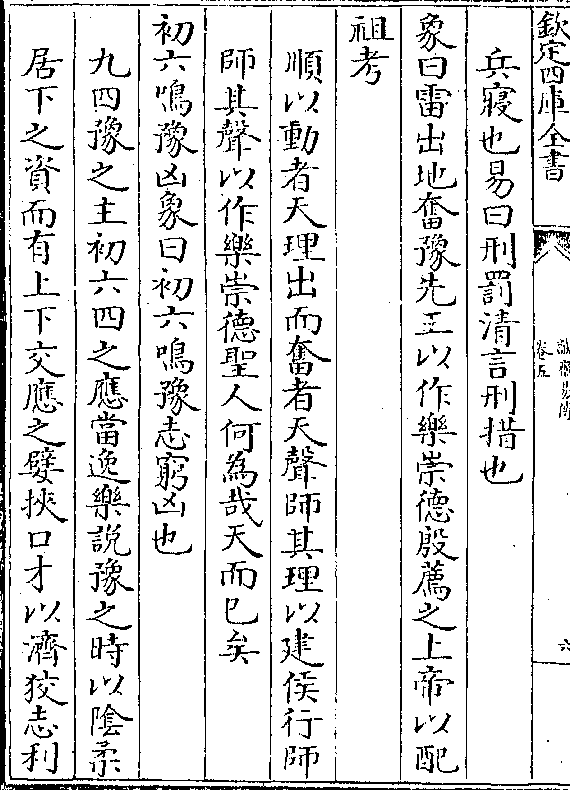 欽定四庫全書
卷五
六
兵寢也易曰刑罰清言刑措也
象曰雷出地奮豫先王以作樂崇德殷薦之上帝以配
祖考
順以動者天理出而奮者天聲師其理以建侯行師
師其聲以作樂崇德聖人何為哉天而已矣
初六鳴豫凶象曰初六鳴豫志窮凶也
九四豫之主初六四之應當逸樂說豫之時以陰柔
居下之資而有上下交應之嬖挾口才以濟狡志利